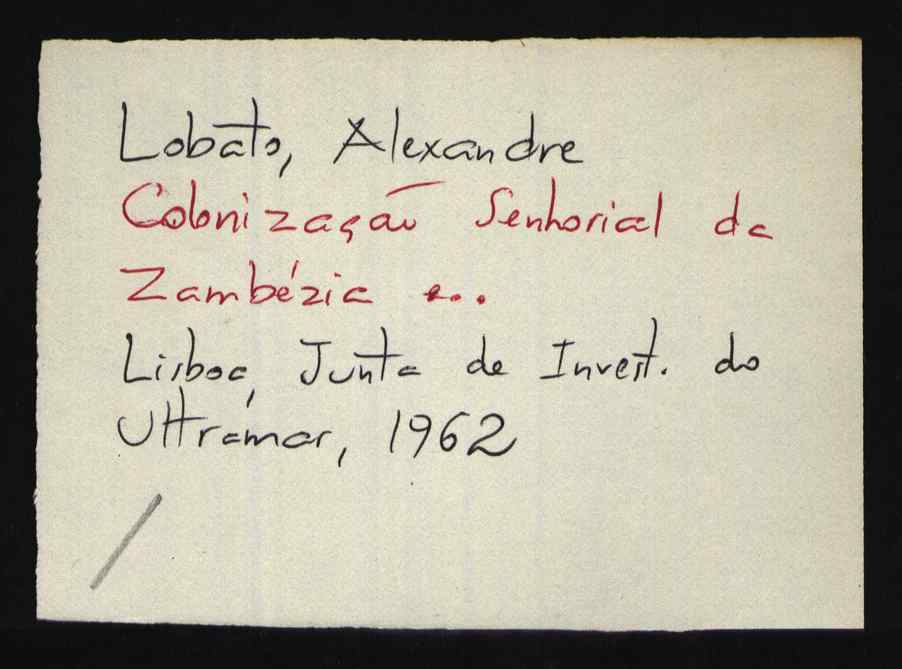 Lobato, Alexandre
Colonização Senhorial da
Zambézia e...
Lisboa, Junta de Invest. do
Ultramar, 1962